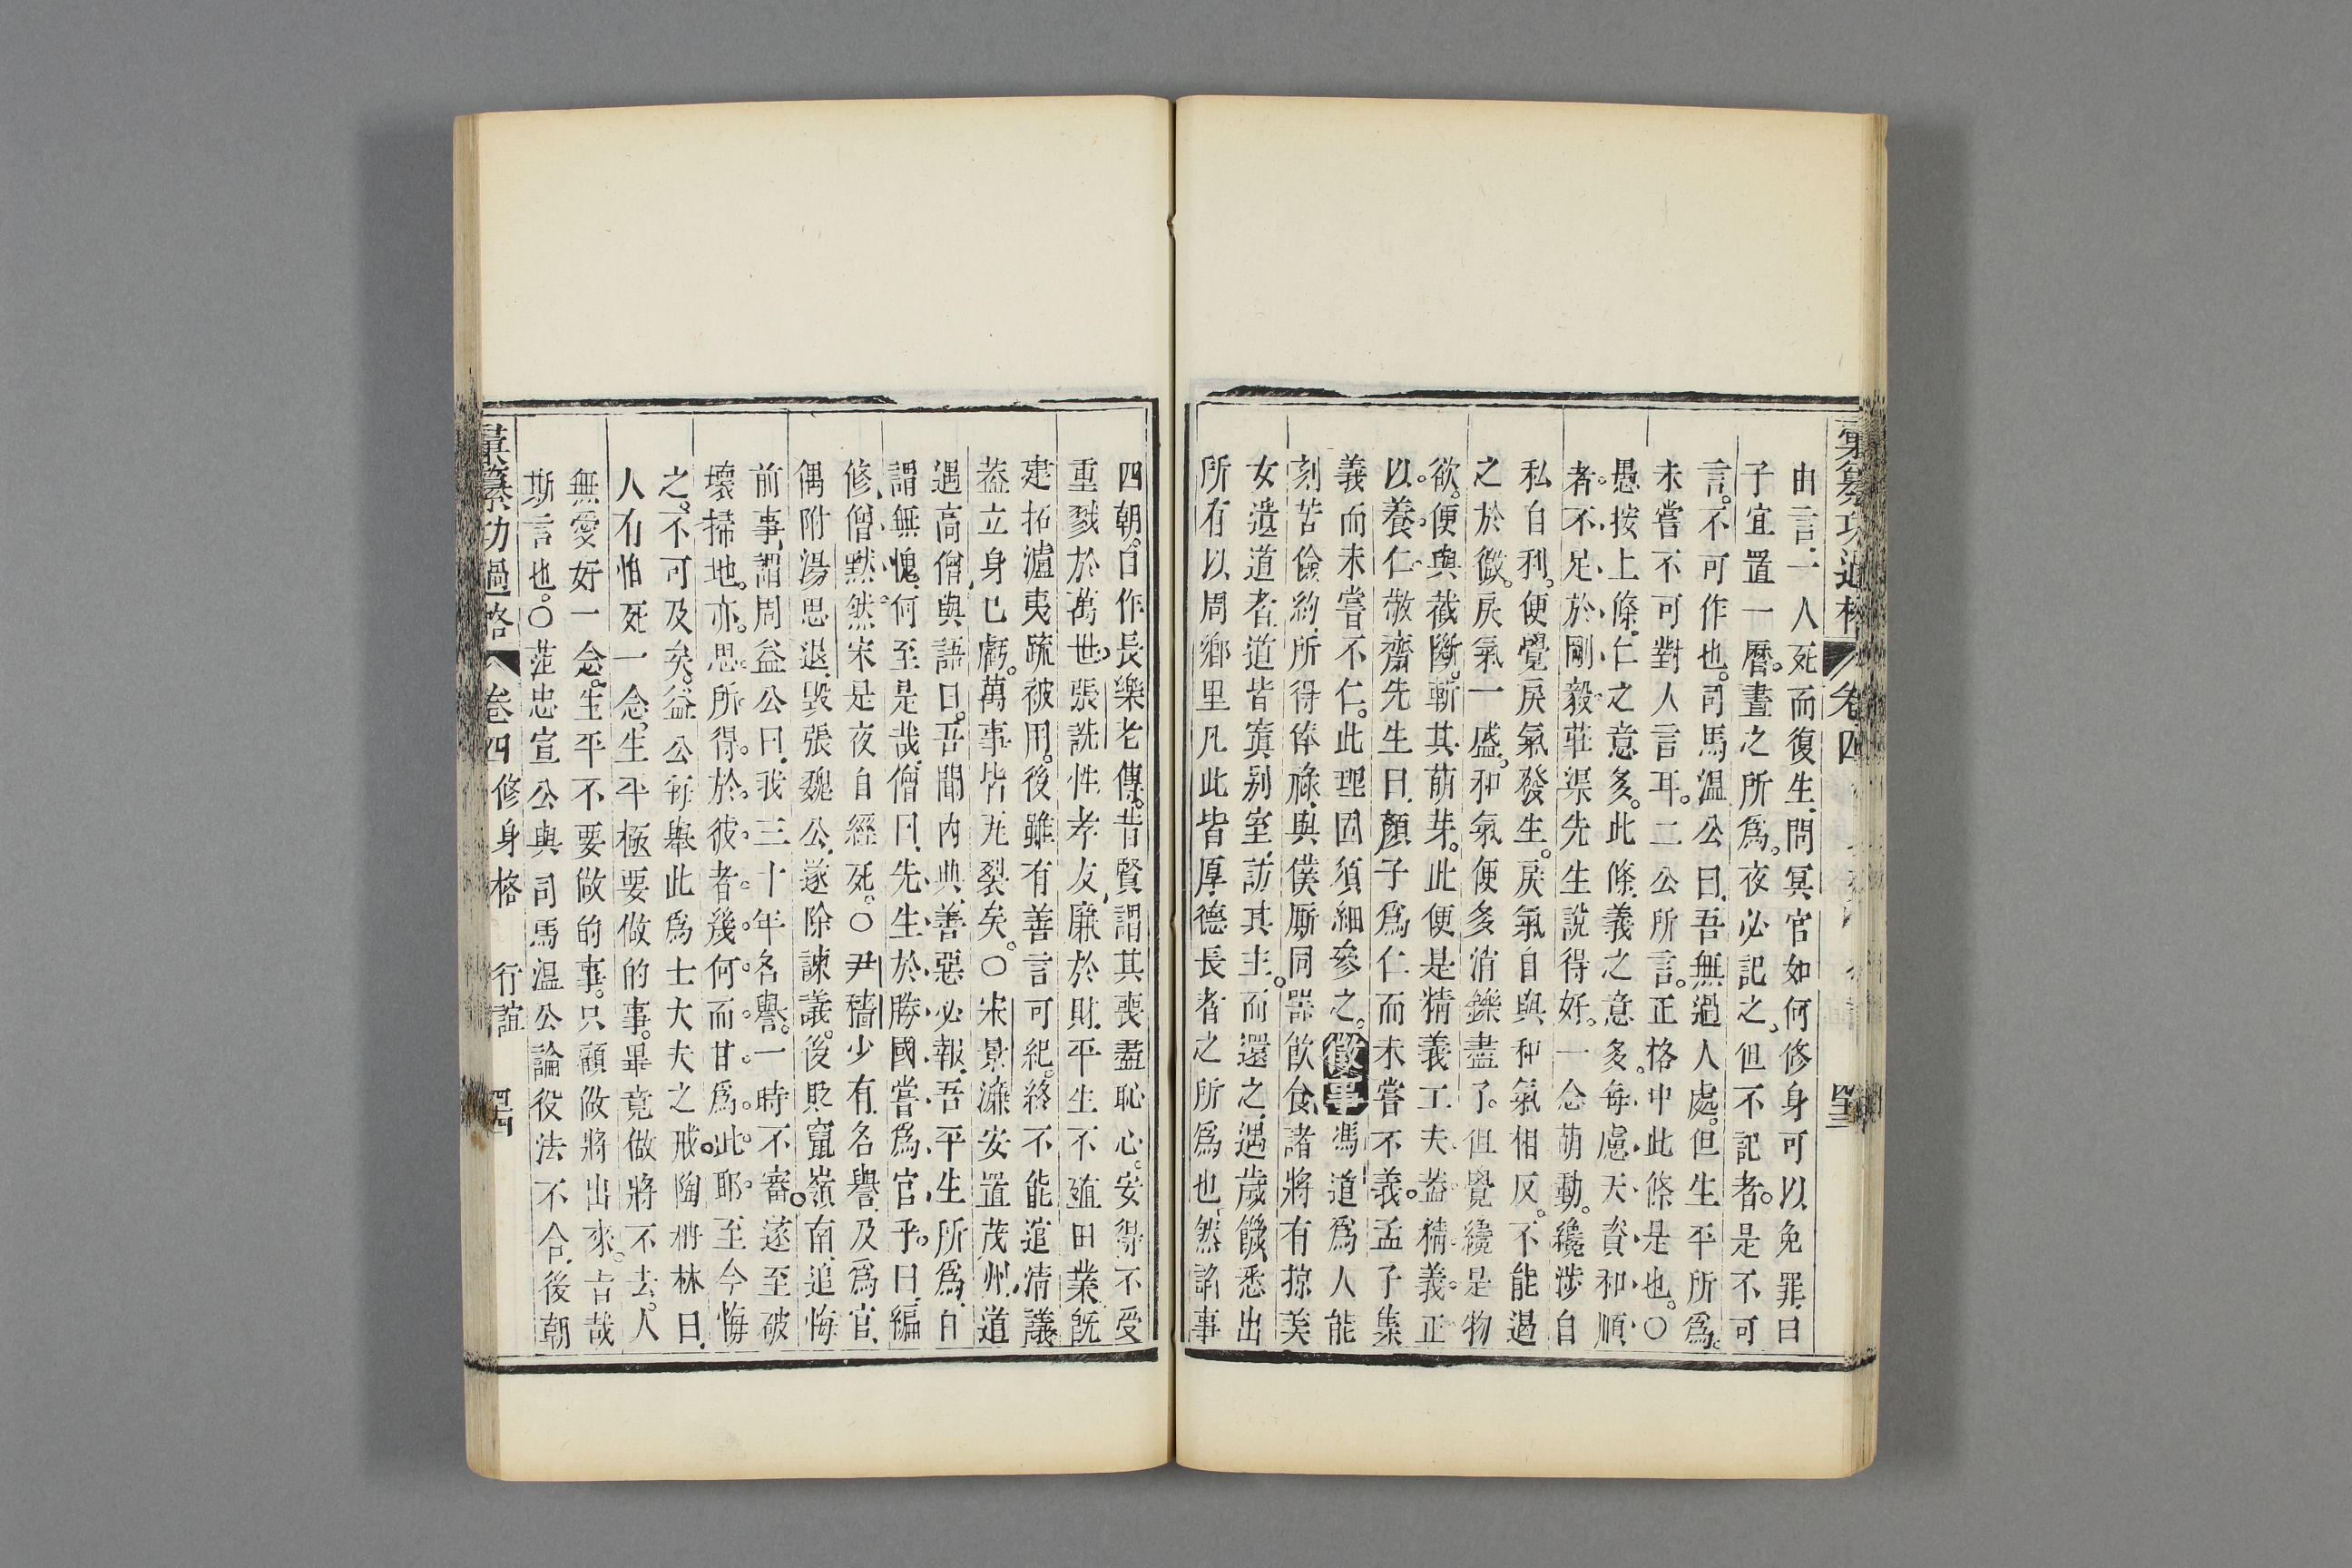 彙纂功過格 卷四
由言一人死而復生問冥官如何修身可以免罪曰
子宜置一曆晝之所爲夜必記之但不記者是不可
言不可作也司馬溫公曰吾無過人處但生平所爲
未嘗不可對人言耳二公所言正格中此條是也〇
愚按上條仁之意多此條義之意多每慮天資和順
者不足於剛毅莊渠先生說得好一念萌動纔涉自
私自利便覺戾氣發生戾氣自與和氣相反不能遏
之於微戾氣一盛和氣便多消鑠盡了但覺纔是物
欲便與截斷斬其萌芽此便是精義工夫葢精義正
以養仁敬齋先生曰顏子爲仁而未嘗不義孟子集
義而未嘗不仁此理固須細參之徵事馮道爲人能
刻苦儉約所得俸祿與僕厮同器飮食諸將有掠美
女遺道者道皆寘别室訪其主而還之遇歲饑悉出
所有以周鄉里凡此皆厚德長者之所爲也然諂事
四朝自作長樂老傳昔賢謂其喪盡恥心安得不受
重戮於萬世張詵性孝友廉於財平生不殖田業旣
建拓瀘夷疏被用後雖有善言可紀終不能逭清議
葢立身已虧萬事皆瓦裂矣〇宋景濂安置茂州道
遇高僧與語曰吾聞内典善惡必報吾平生所爲自
謂無愧何至是哉僧曰先生於勝國嘗爲官乎曰編
修僧默然宋是夜自經死〇尹穡少有名譽及爲官
偶附湯思退毀張魏公遂除諫議後貶竄嶺南追悔
前事謂周益公曰我三十年名譽一時不審遂至破
壞掃地亦思所得於彼者幾何而甘爲此耶至今悔
之不可及矣益公每舉此爲士大夫之戒陶𣂏林曰
人有怕死一念生平極要做的事畢竟做將不去人
無愛好一念生平不要做的事只顧做將出來旨哉
斯言也〇范忠宣公與司馬溫公論役法不合後朝
彙纂功過格 卷四 修身格 行誼 四四